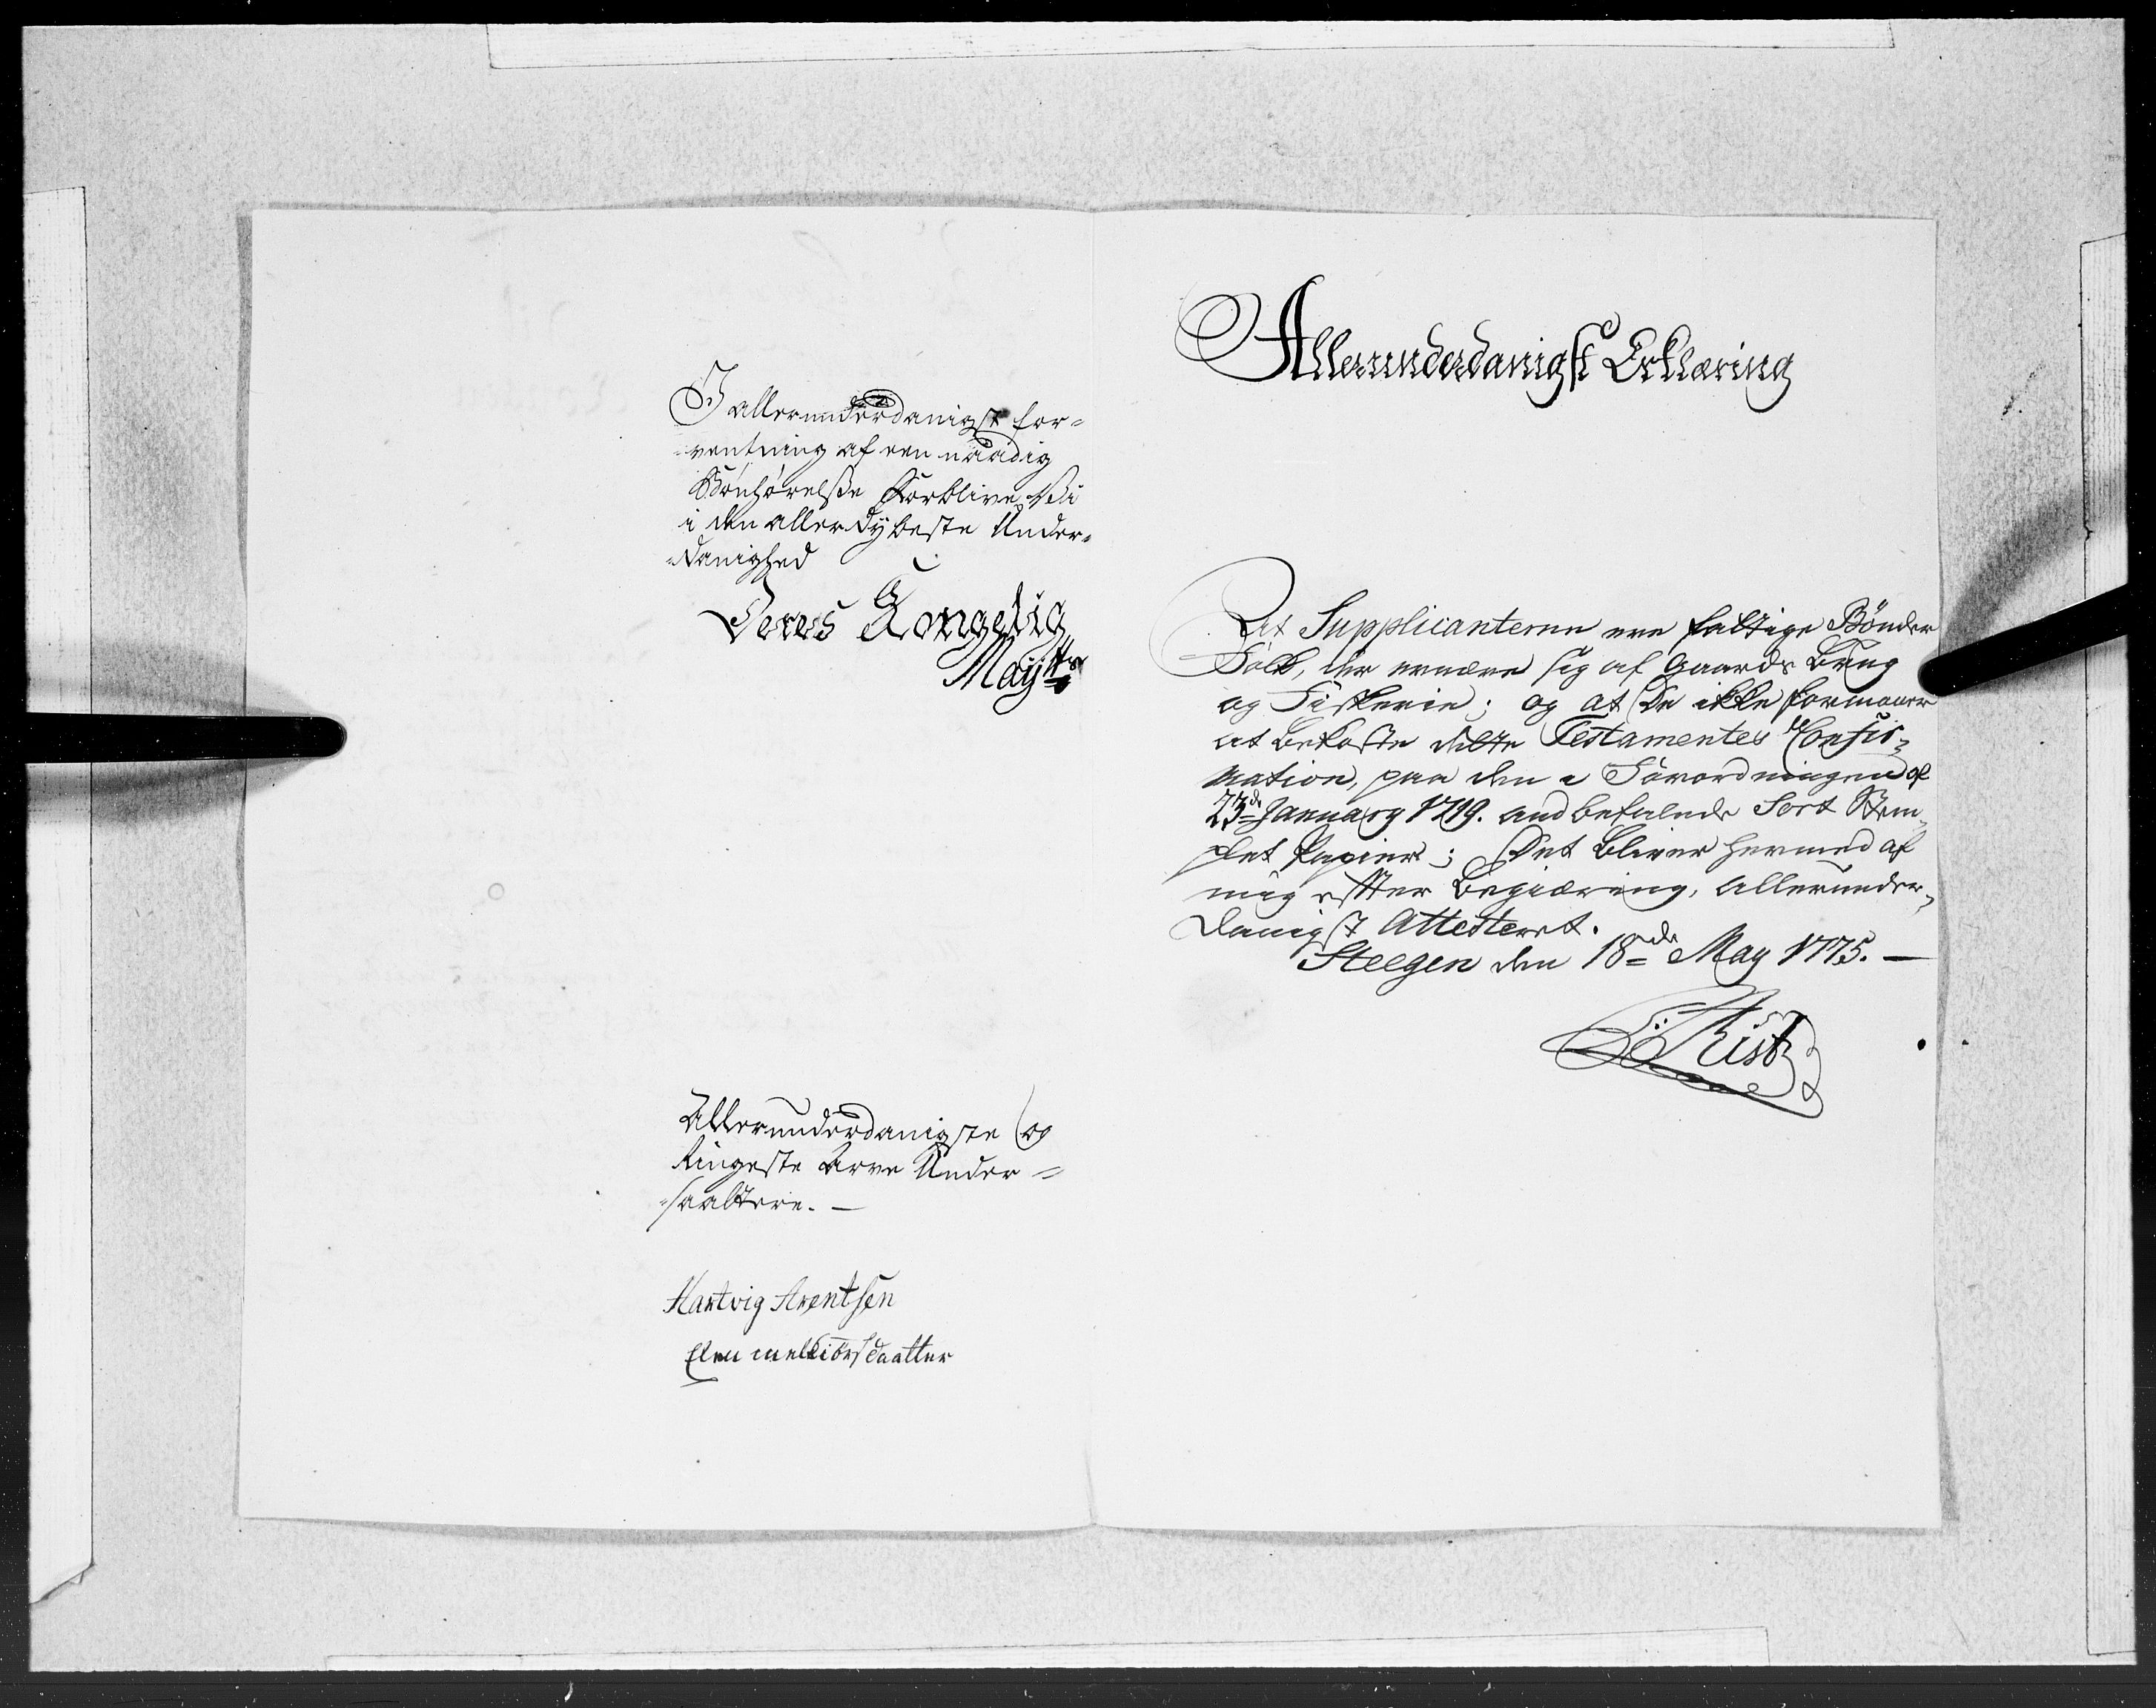 I allerunderdanigst for-
-ventning af een naadig
Bønhørelsse forblive Vi
i den allerdybeste Under-
-danighed
Deres Kongelig
Maytts
Allerunderdanigste og
Ringeste Arve Under-
-saattere. —
Hartvig Arentsen
Elen melkiorsdaatter
Allerunderdanigst Erklæring
At Supplicanterne ere fattige Bønder
Folk, der ernære sig af Gaards Brug
og Fiskerie; og at De ikke formaaer
at bekoste dette Testamentes Confir-
mation, paa den i Forordningen af
23de January 1719. anbefalede Sort Stem-
plet Papier; Det bliver hermed af
mig efter Begiæring, allerunder-
danigst Attesteret.
Steegen den 18de May 1775. —
Rist